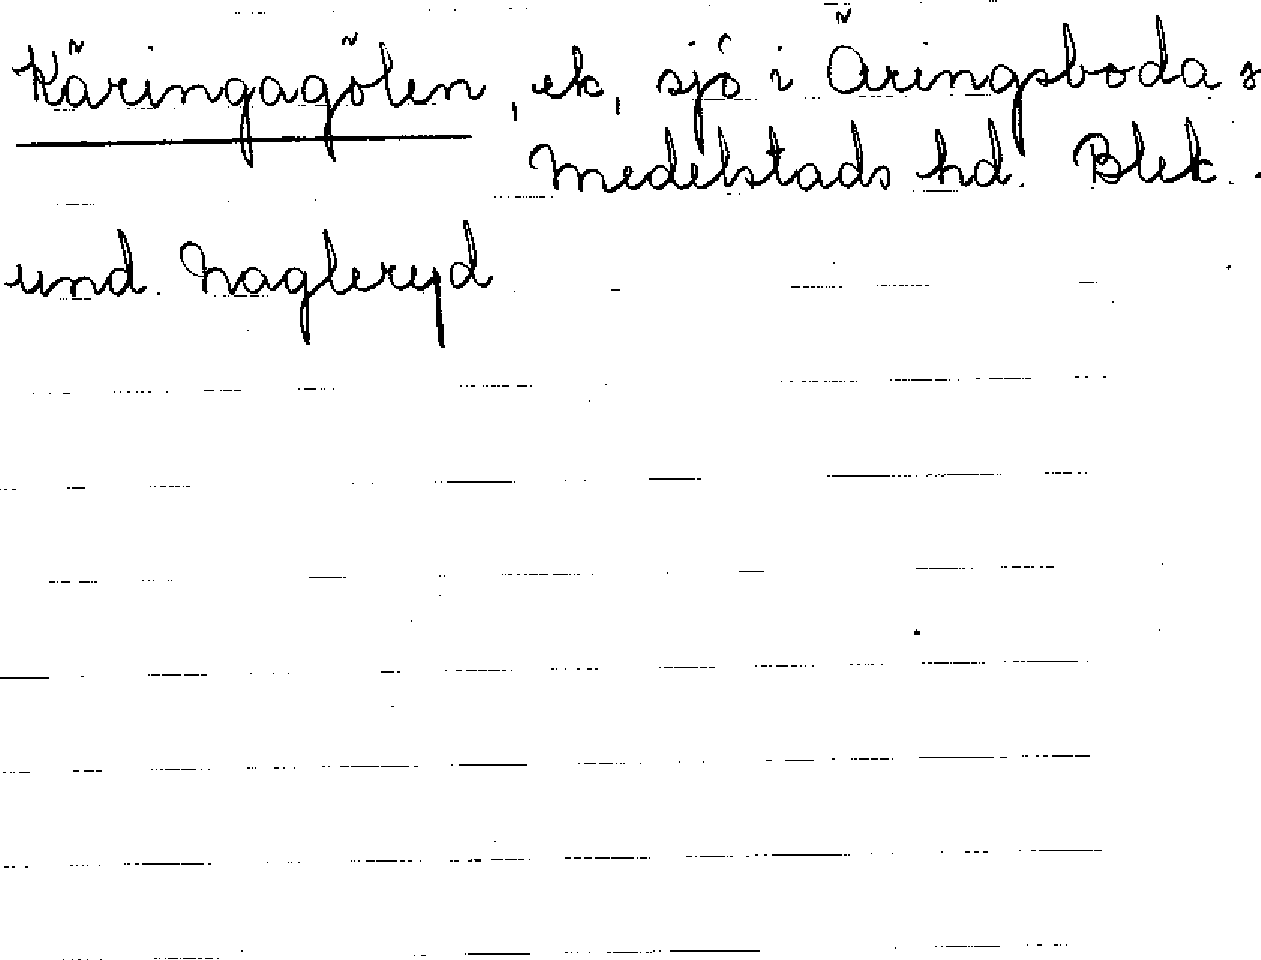 Käringagölen, ek, sjö i Äringsboda s
Medelstads hd. Blek.
und. Nagleryd